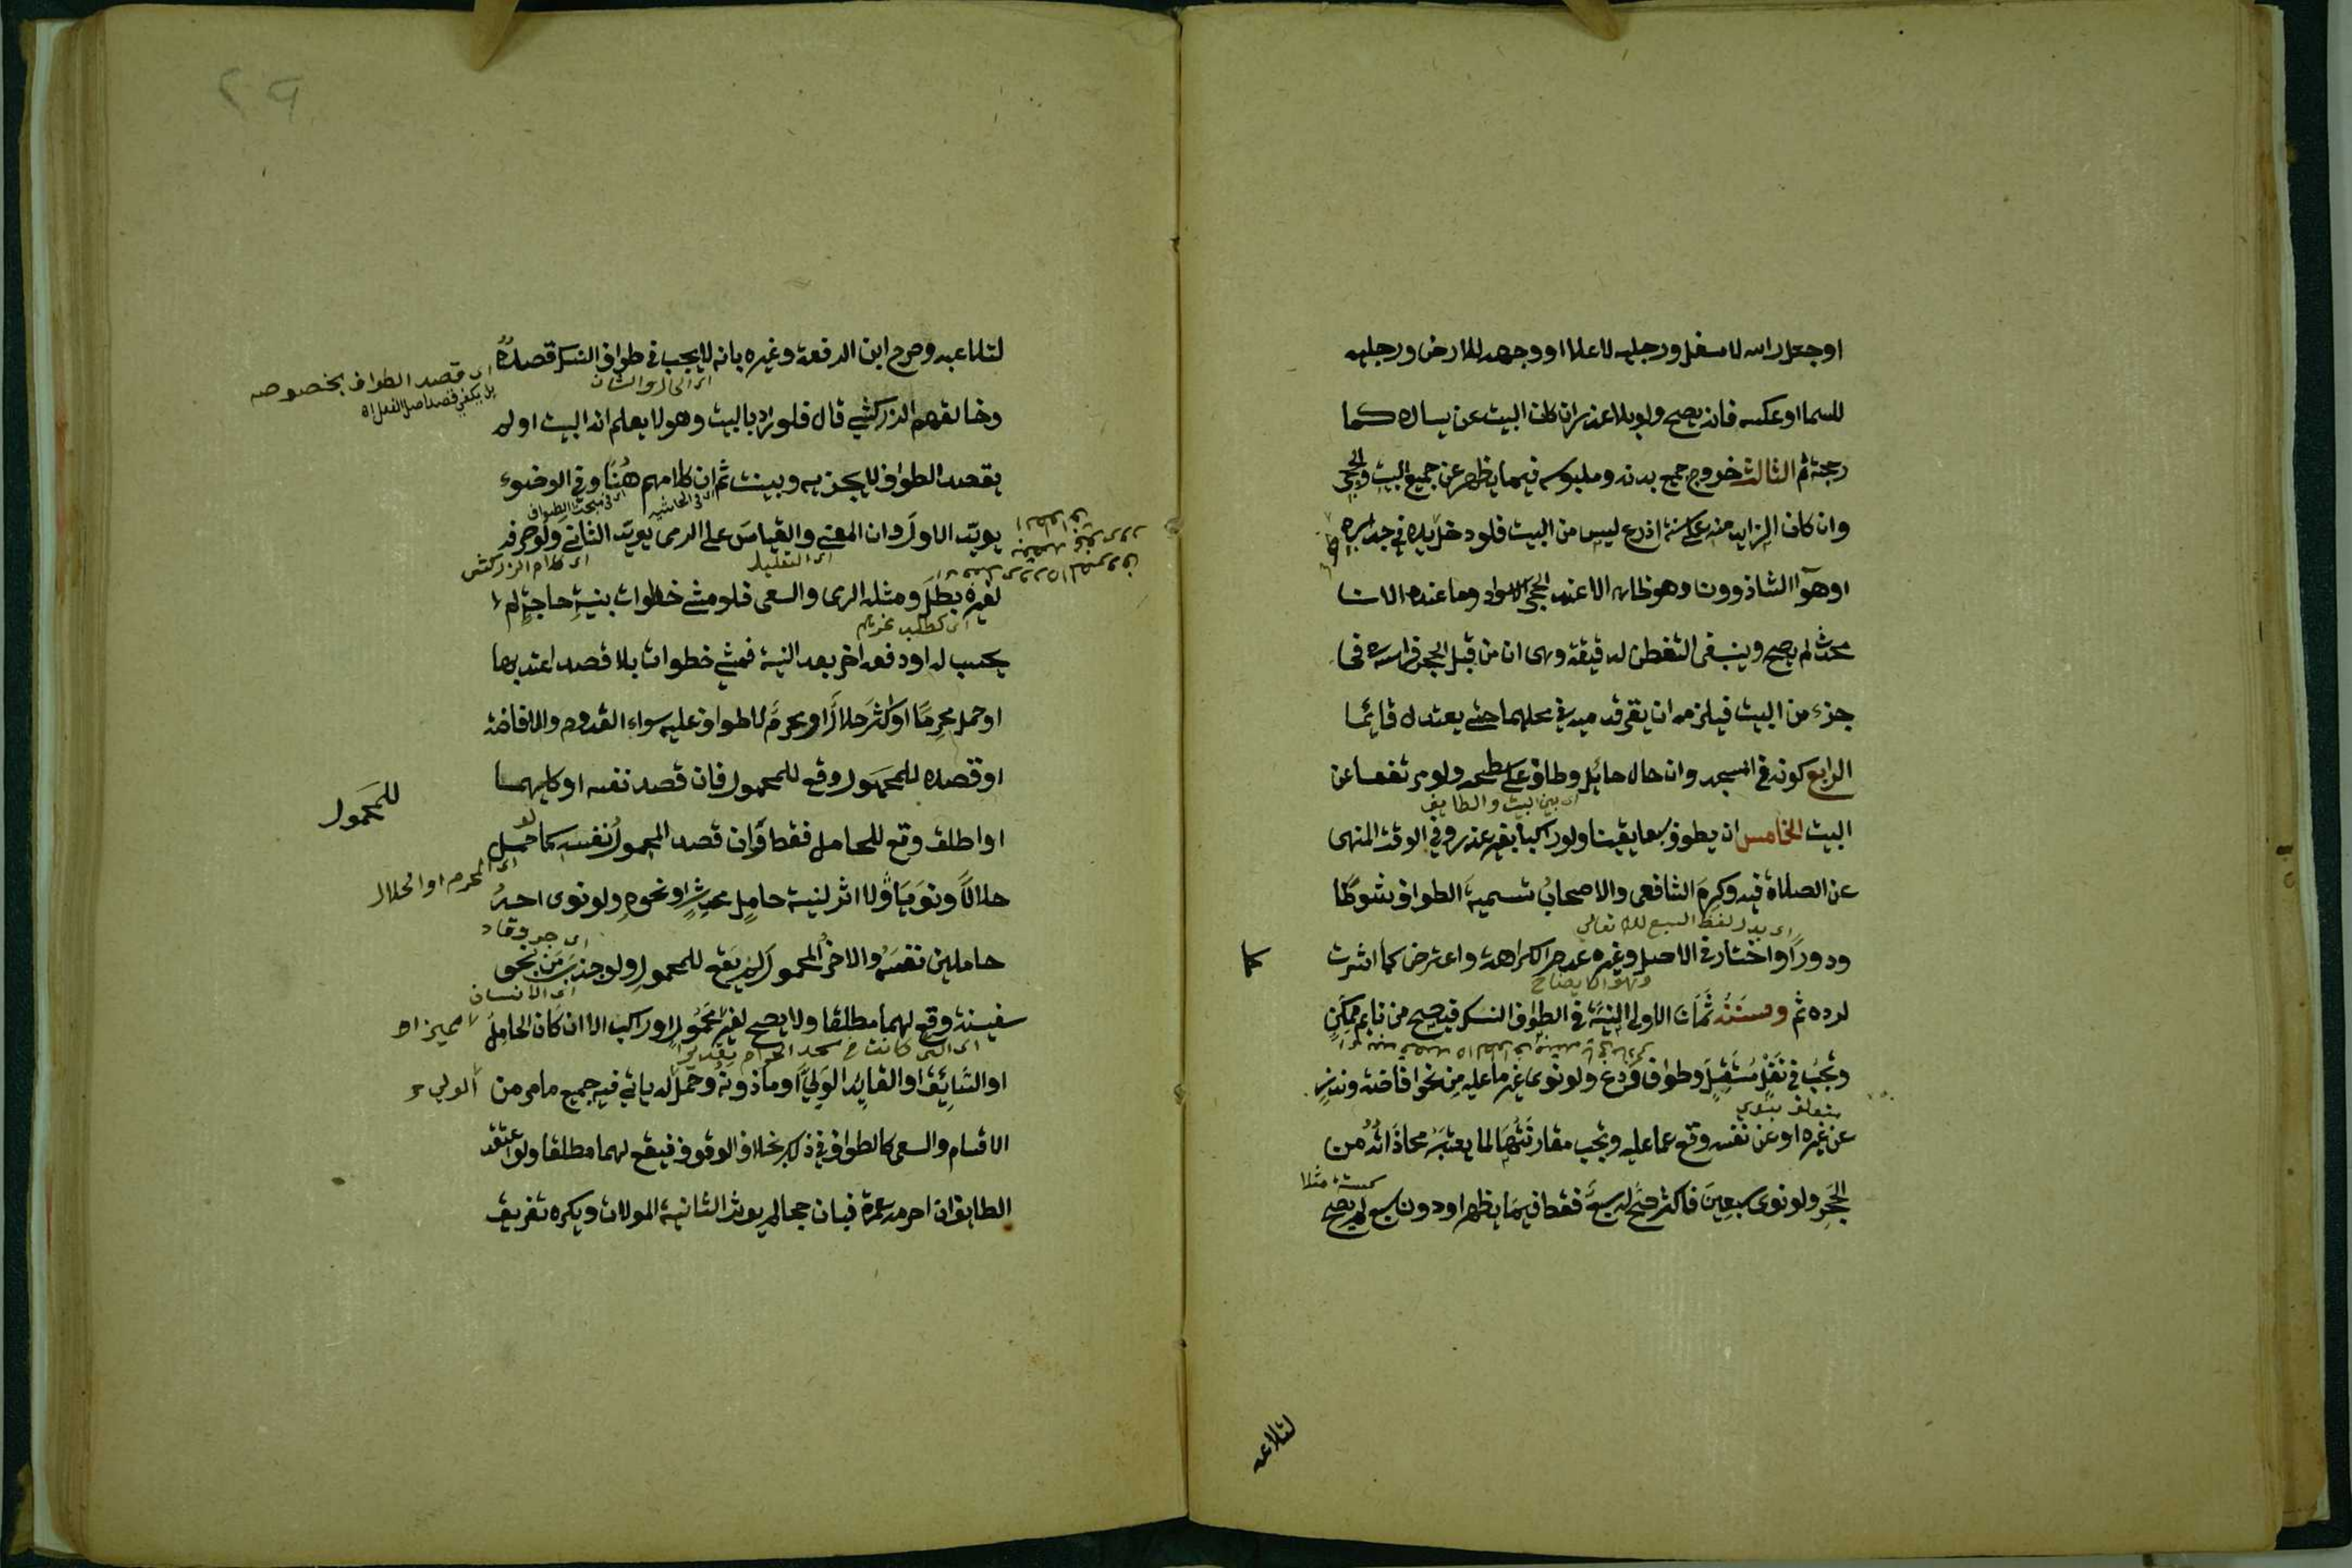 او جعل راسه لاسفل ورجليه لاعلا او وجهه للارض ورجليه
للسما او عكسه فانه يصح ولو بلا عذر ان كان البيت عن يساره كما
رجحته ثم الثالث خروج جميع بدنه وملبوسه فيما يظهر عن جميع البيت والحجر
وان كان الزايد منه على ستة اذرع ليس من البيت فلو دخل يده في جداره
او هوآ الشاذروان وهو ظاهر الا عند الحجر الاسود وما عنده الان
محدث لم يصح وينبغي التفطن لدقيقة وهي ان من قبل الحجر فراسه في
جزء من البيت فيلزمه ان يقر قدميه في محلهما حتى يعتدل قائما
الرابع كونه في المسجد وان حال حائل وطاف على سطحه ولو مرتفعا عن
اى بين البيت والطايف
البيت الخامس ان يطوف سبعا يقينا ولو راكبا بغير عذر وفي الوقت المنهى
عن الصلاة فيه وكره الشافعى والاصحاب تسمية الطواف شوطا
ودورا واختار في الاصل وغيره عدم الكراهة واعترض كما اشرت
كما
لرده ثم وسننه ثمان الاولى النية في الطواف النسك فيصح من نايم ممكن
وتجب في نفل مستقل وطواف ودع ولو نوى غير ما عليه من نحو افاضة ونذر
متعلق بنوى
عن غيره او عن نفسه وقع عما عليه وتجب مقارنتها لما يعتبر محاذاته من
كستة مثلا
الحجر ولو نوى سبعين فاكثر صح له سبع فقط فيما يظهر او دون سبع لم يصح
لتلاعبه
٢٩
لتلاعبه وصرح ابن الرفعة وغيره بانه لا يجب في طواف النسك قصده
اى قصد الطواف بخصوصه
بل يكفي قصد اصل الفعل اه
اى الحال والشان
وخالفهم الزركشي قال فلو دار بالبيت وهو لا يعلم انه البيت او لم
يقصد الطواف لا يجزيه وبينت ثم ان كلامهم هنا وفي الوضوء
اى في الحاشية
اى في مبحث الطواف
يويد الاول وان المعنى والقياس على الرمى يويد الثانى ولو صرفه
اى التعليل
اى كلام الزركشى
لغيره بطل ومثله الرمى والسعى فلو مشى خطوات بنية حاجة لم
اى كطلب غريم
يحسب له او دفعه اخر بعد النية فمشي خطوات بلا قصد اعتد بها
او حمل محرما او اكثر حلال او محرم لا طواف عليه سواء القدوم والافاضة
او قصده للمحمول وقع للمحمول فان قصد نفسه او كليهما
للمحمول
او اطلق وقع للحامل فقط وان قصد المحمول نفسه كما لو حمل
اى المحرم او الحلال
حلالا ونويا ولا اثر لنية حامل محدث او نحوه ولو نوى احد
حاملين نفسه والاخر المحمول لم يقع للمحمول ولو جذب من بنحو
اى جر وقاد
اى الانسان
سفينة وقع لهما مطلقا ولا يصح لغير محمول او راكب الا ان كان الحامل
المميز او
او السائق او القايد الولي او ماذونه وحمل له ياتي فيه جميع ما مر من
الولي
الاقسام والسعى كالطواف في ذلك بخلاف الوقوف فيقع لهما مطلقا ولو اعتقد
الطايف ان احرمه عمرة فبان حجا لم يوثر الثانية الموالات ويكره تفريق